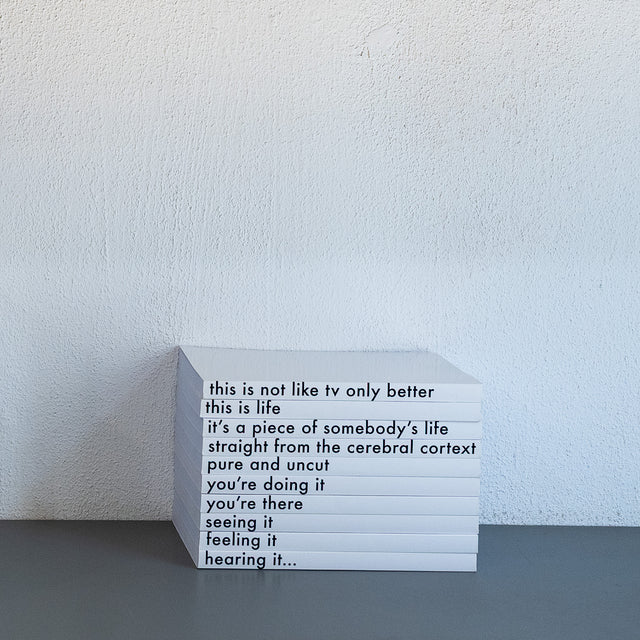 this is not like tv only better
this is life
it's a piece of somebody's life
straight from the cerebral cortext
pure and uncut
you're doing it
you're there
seeing it
feeling it
hearing it...